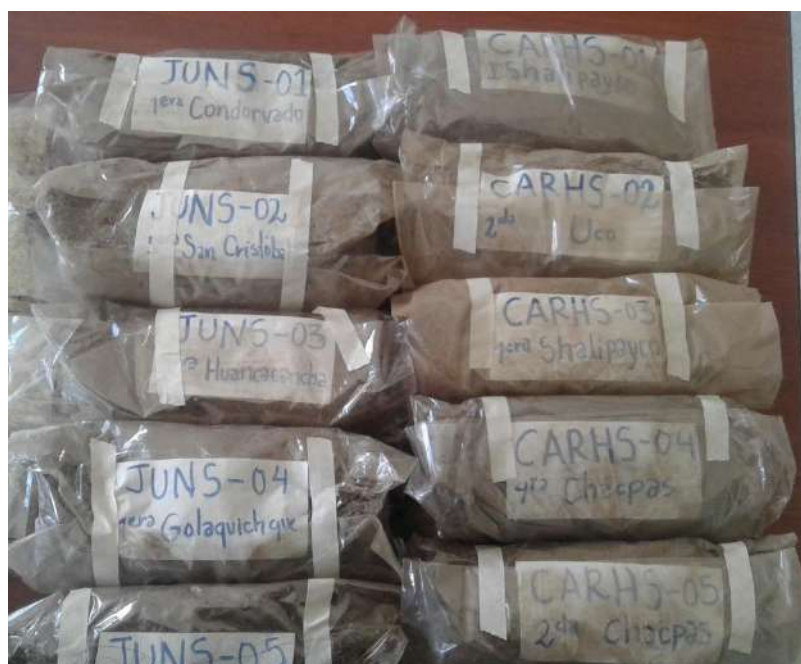 JUNS-01
1era Condorvado
JUNS-02
San Cristóbal
JUNS-03
Huancacancha
JUNS-04
1era Golaquichque
JUNS-05
CARHS-01
Shalipayco
CARHS-02
2da Uco
CARHS-03
1era Shalipayco
CARHS-04
Chacpas
CARHS-05
2da Chacpas